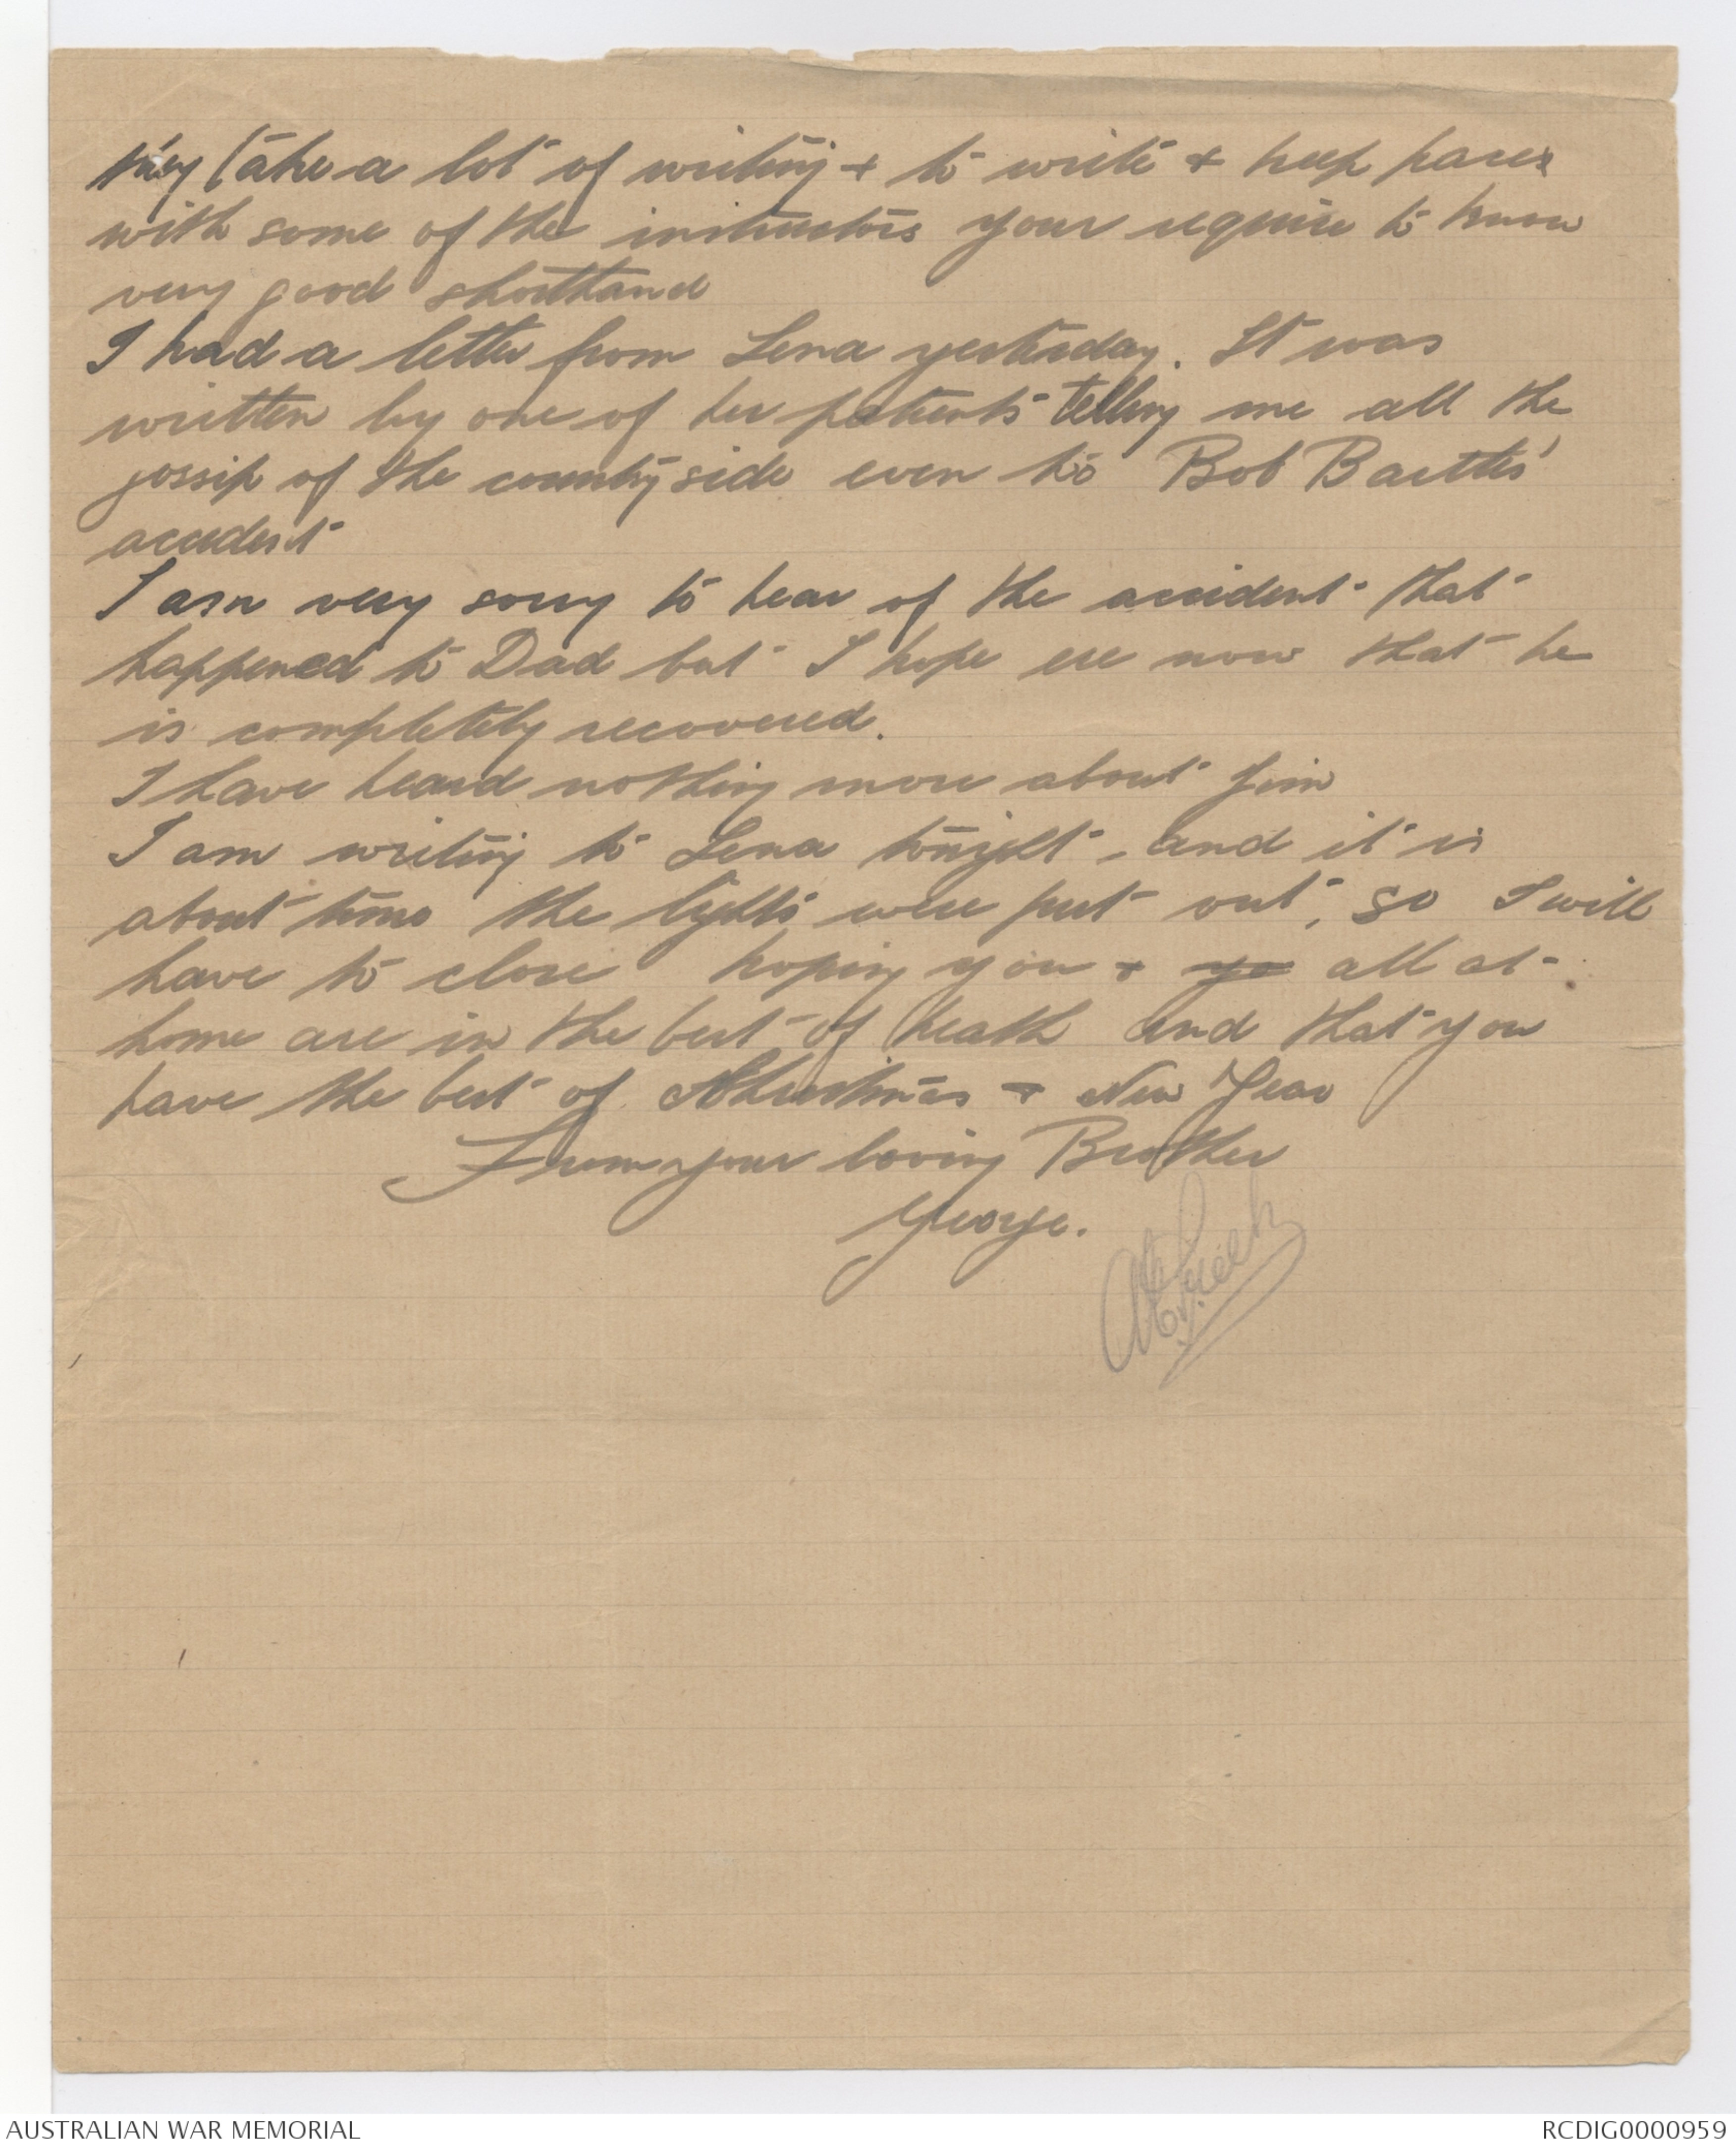 they take a lot of writing + to write + keep pace
with some of the instructors your require to know
very good shorthand
I had a letter from Lena yesterday. It was
written by one of her patients telling me all the
gossip of the country side even to Bob
accident
I am very sorry to hear of the accident that
happened to Dad but I hope ere now that he
is completely recovered.
I have heard nothing more about Jim
I am writing to Lena tonight, and it is
about time the lights were put out, so I will
have to close hoping you + all at
home are in the best of heath and that you
have the best of Christmas + New Year
From your loving Brother
George.
AUSTRALIAN WAR MEMORIAL
RCDIG0000959